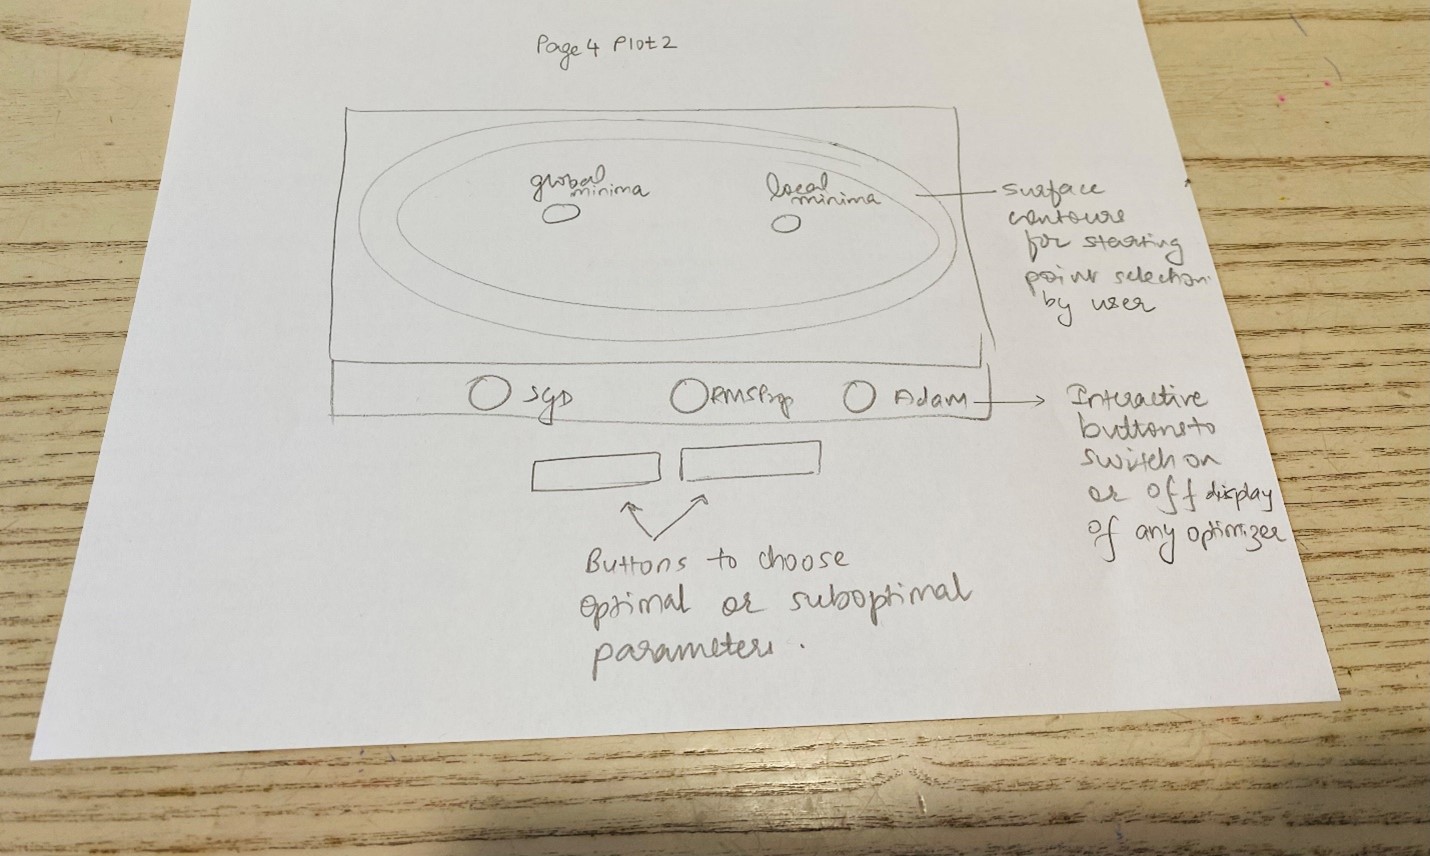 Page 4 Plot 2
global
minima
local
minima
surface
contours
for starting
point selection
by user
SGD
RMSProp
Adam
Interactive
buttons to
switch on
or off display
of any optimizer
Buttons to choose
optimal or suboptimal
parameters.